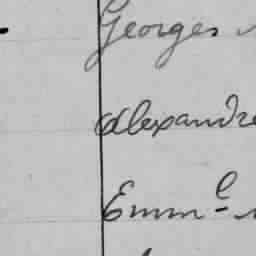 Georges
Alexandre
Emm.e